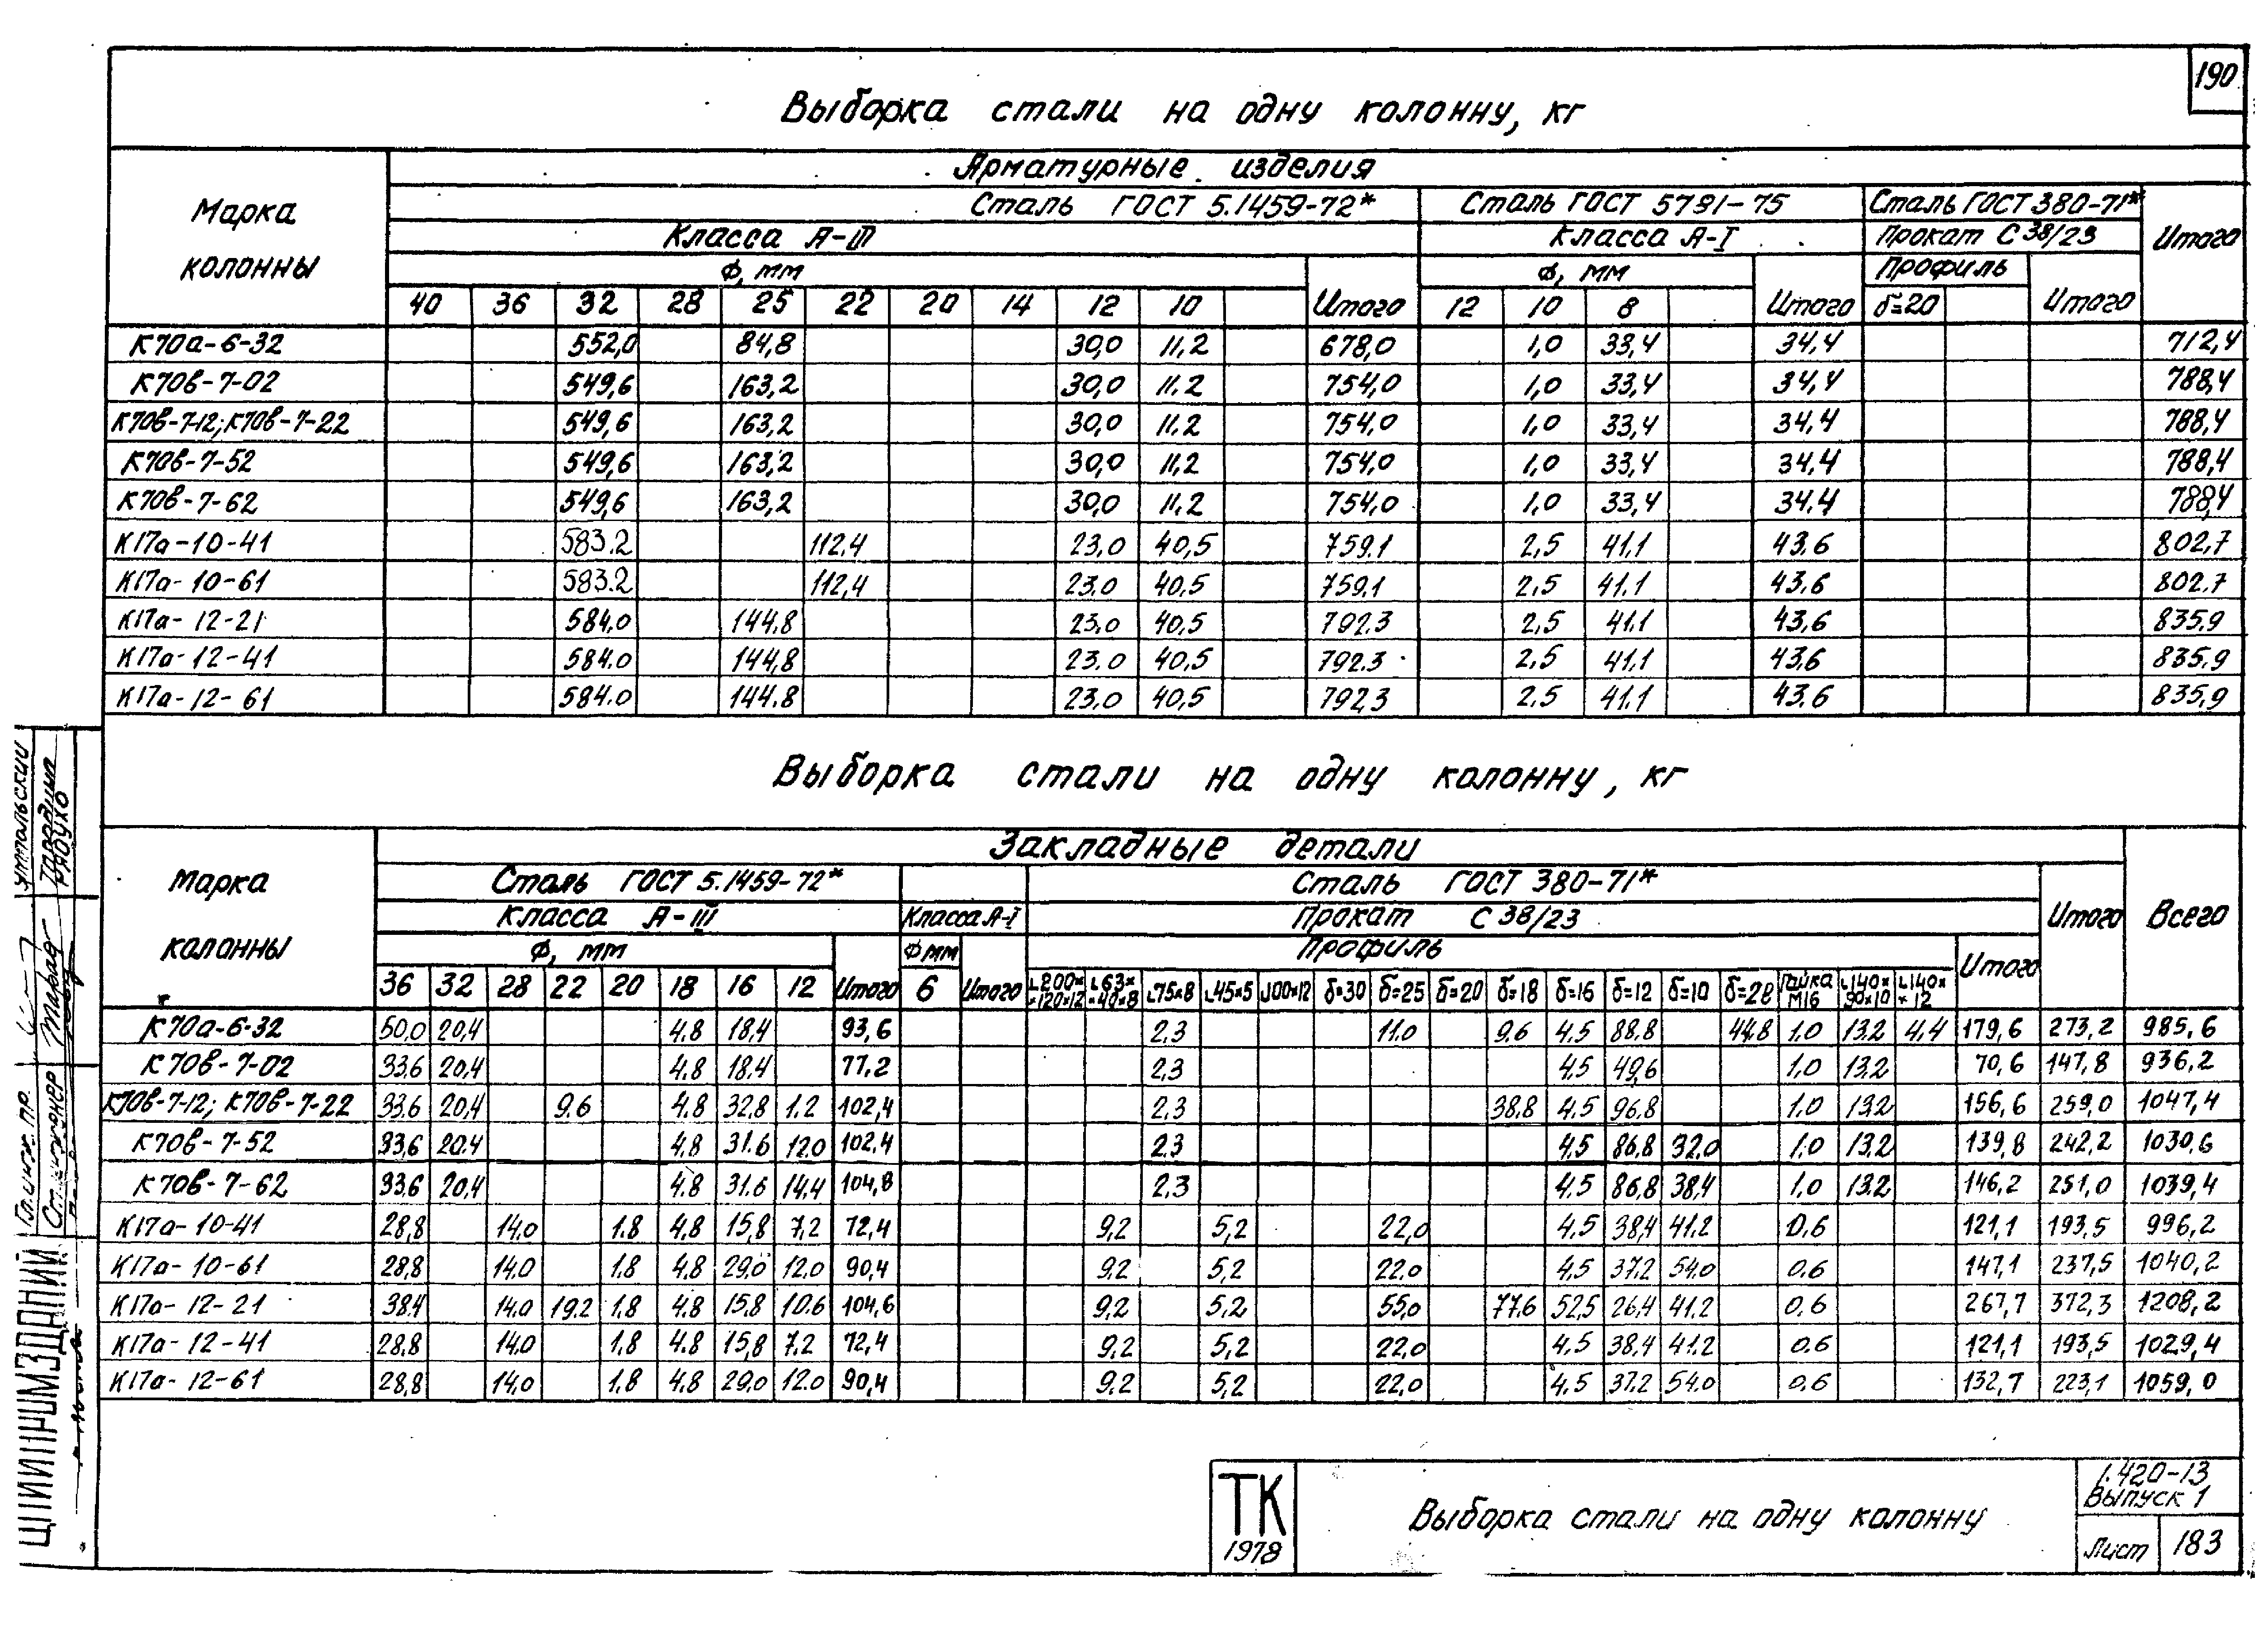 190
Выборка стали на одну колонну, кг
Марка колонны
Арматурные изделия
Сталь ГОСТ 5.1459-72* Сталь ГОСТ 5781-75 Сталь ГОСТ 380-71* Итого
Класса А-III Класса А-I Прокат С 38/23
Ф, мм Итого Ф, мм Итого Профиль Итого
40 36 32 28 25 22 20 14 12 10 12 10 8 δ=20
К70а-6-32 552,0 84,8 30,0 11,2 678,0 1,0 33,4 34,4 712,4
К70в-7-02 549,6 163,2 30,0 11,2 754,0 1,0 33,4 34,4 788,4
К70в-7-12; К70в-7-22 549,6 163,2 30,0 11,2 754,0 1,0 33,4 34,4 788,4
К70в-7-52 549,6 163,2 30,0 11,2 754,0 1,0 33,4 34,4 788,4
К70в-7-62 549,6 163,2 30,0 11,2 754,0 1,0 33,4 34,4 788,4
К17а-10-41 583.2 112,4 23,0 40,5 759.1 2,5 41.1 43,6 802,7
К17а-10-61 583.2 112,4 23,0 40,5 759.1 2,5 41.1 43,6 802.7
К17а-12-21 584.0 144.8 23,0 40,5 792.3 2,5 41.1 43,6 835,9
К17а-12-41 584.0 144,8 23.0 40,5 792.3 2,5 41.1 43,6 835,9
К17а-12-61 584.0 144.8 23,0 40,5 792,3 2,5 41.1 43,6 835,9
Выборка стали на одну колонну, кг
Марка колонны
Закладные детали Всего
Сталь ГОСТ 5.1459-72* Сталь ГОСТ 380-71* Итого
Класса А-III Класса А-I Прокат С 38/23
Ф, мм Итого Ф мм Итого Профиль Итого
36 32 28 22 20 18 16 12 6 ∟200××120×12 ∟63××40×8 ∟75×8 ∟45×5 ∟100×12 δ=30 δ=25 δ=20 δ=18 δ=16 δ=12 δ=10 δ=28 Гайка М16 ∟140×90×10 ∟140××12
К70а-6-32 50,0 20,4 4.8 18,4 93,6 2,3 11,0 9,6 4,5 88,8 44,8 1,0 13,2 4,4 179,6 273,2 985,6
К70в-7-02 33,6 20,4 4.8 18,4 77,2 2,3 4,5 49,6 1,0 13,2 70,6 147,8 936,2
К70в-7-12; К70в-7-22 33,6 20,4 9.6 4.8 32,8 1.2 102,4 2,3 38,8 4,5 96,8 1,0 13,2 156,6 259,0 1047,4
К70в-7-52 33,6 20.4 4,8 31.6 12,0 102,4 2,3 4,5 86,8 32,0 1,0 13,2 139,8 242,2 1030,6
К70в-7-62 33,6 20,4 4,8 31.6 14,4 104,8 2,3 4,5 86,8 38,4 1,0 13,2 146,2 251,0 1039,4
К17а-10-41 28,8 14,0 1.8 4,8 15,8 7,2 72,4 9,2 5,2 22,0 4,5 38,4 41.2 0,6 121,1 193,5 996,2
К17а-10-61 28,8 14,0 1,8 4,8 29,0 12,0 90,4 9,2 5,2 22,0 4,5 37,2 54,0 0,6 147,1 237,5 1040,2
К17а-12-21 38.4 14,0 19,2 1,8 4,8 15,8 10.6 104,6 9,2 5,2 55,0 77,6 52,5 26,4 41,2 0,6 267,7 372,3 1208,2
К17а-12-41 28,8 14,0 1,8 4.8 15,8 7,2 72,4 9,2 5,2 22,0 4,5 38,4 41.2 0.6 121,1 193,5 1029,4
К17а-12-61 28,8 14,0 1.8 4,8 29,0 12,0 90,4 9,2 5,2 22,0 4,5 37,2 54,0 0,6 132,7 223,1 1059,0
ТК
1978
Выборка стали на одну колонну
1.420-13
Выпуск 1
Лист 183
ЦНИИПРОМЗДАНИЙ
Гл. инж. пр.
Ст. инженер